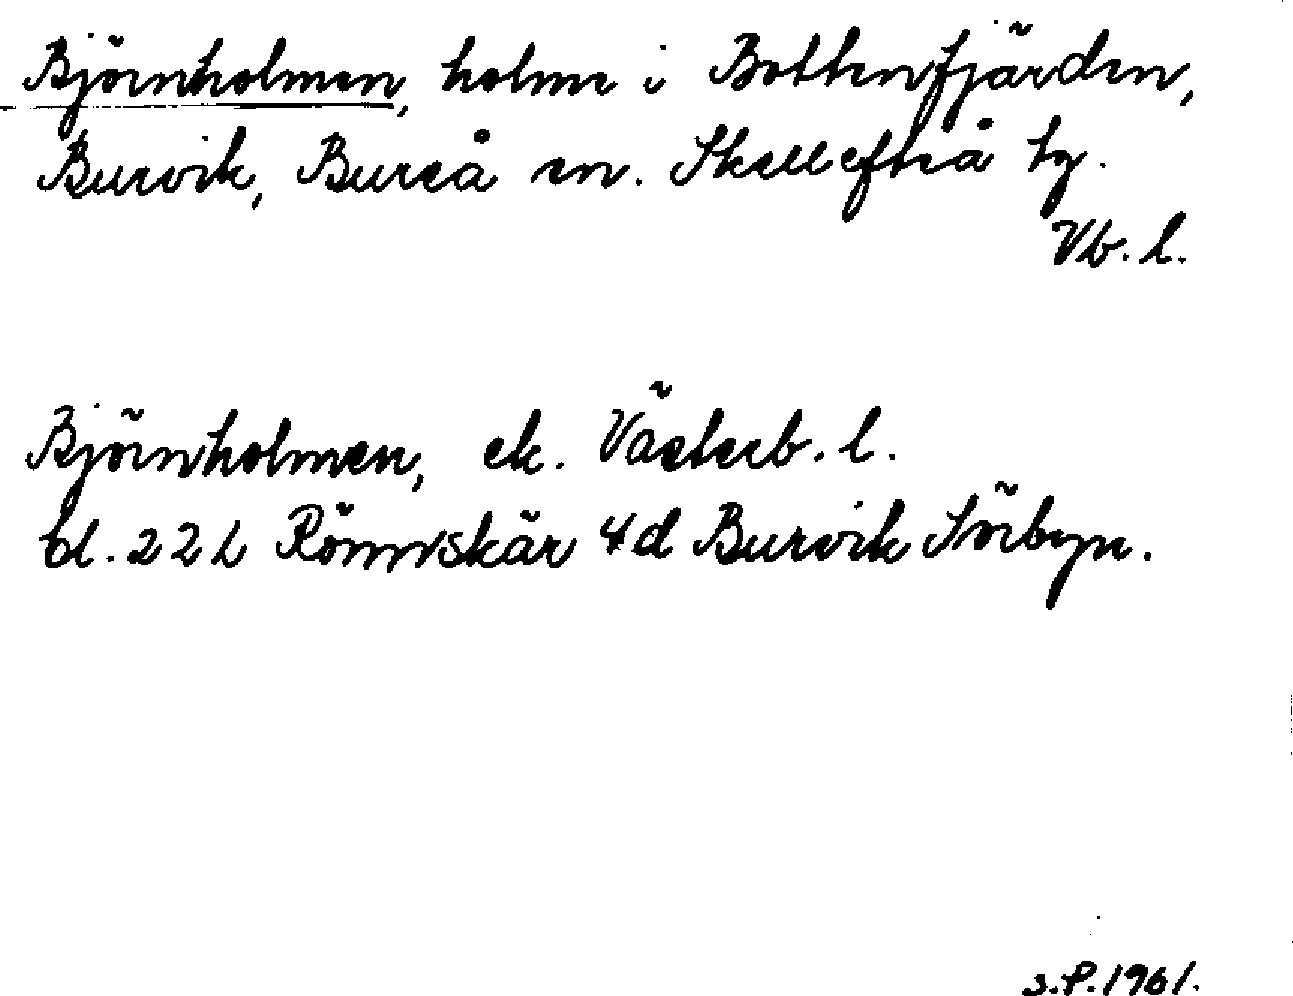 Björnholmen, holme i Bottenfjärden,
Burvik, Bureå sn. Skellefteå tg.
Vb. l.
Björnholmen, ek. Västerb. l.
bl. 22 L Rönnskär 4d Burvik Sörbyn.
S.P. 1961.